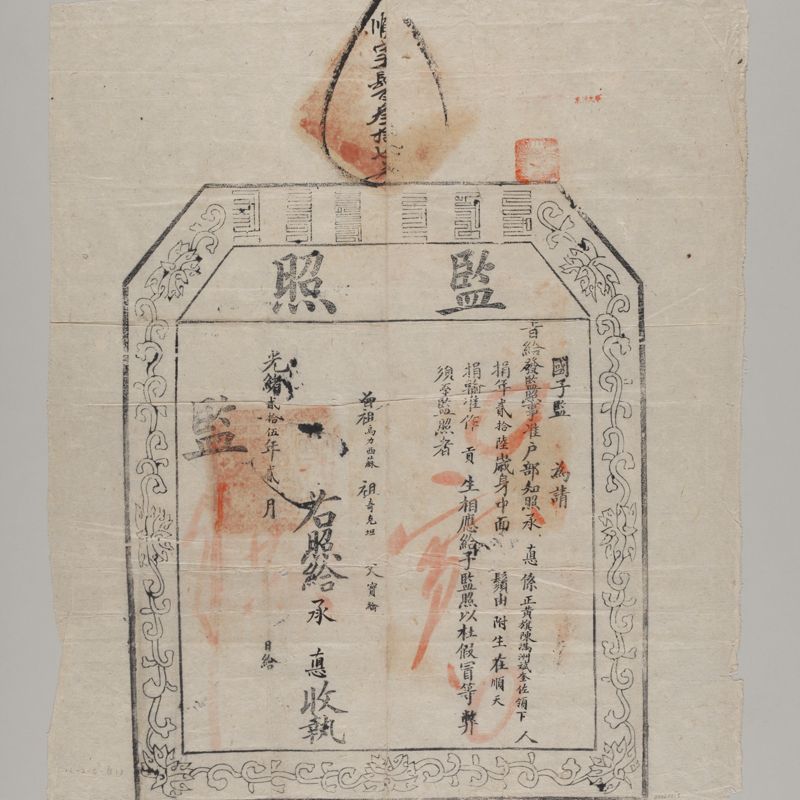 監照
國子監 為請
旨給發監照事准户部知照承惪係正黄旗陳滿洲斌全佐領下人
捐年貳拾陸歲身中面 鬚由附生在順天
捐輸准作貢生相應給予監照以杜假冒等弊
須至監照者
曾祖烏力西蘇 祖奇克坦 父寶
右照給承惪收執
光緒貳拾伍年貳月 日給
監